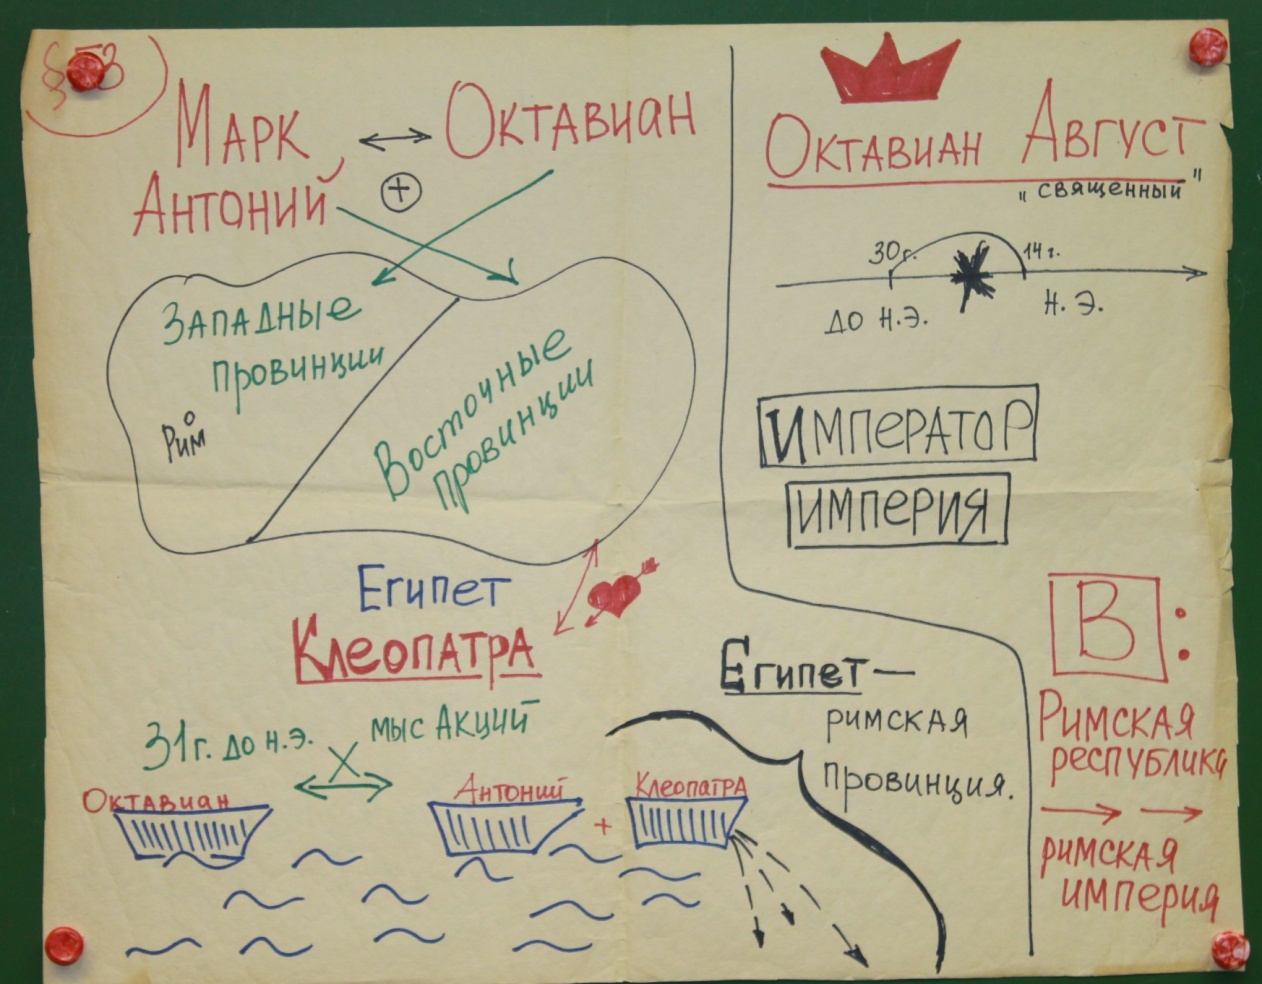 § 53
Марк
Антоний
Октавиан
+
Западные
провинции
Рим
Восточные
провинции
Египет
Клеопатра
31г. до н.э.
мыс Акций
Октавиан
Антоний
+
Клеопатра
Октавиан Август
"священный"
30г.
14г.
до н.э.
н.э.
Император
империя
Египет —
римская
провинция.
В:
Римская
республика
римская
империя